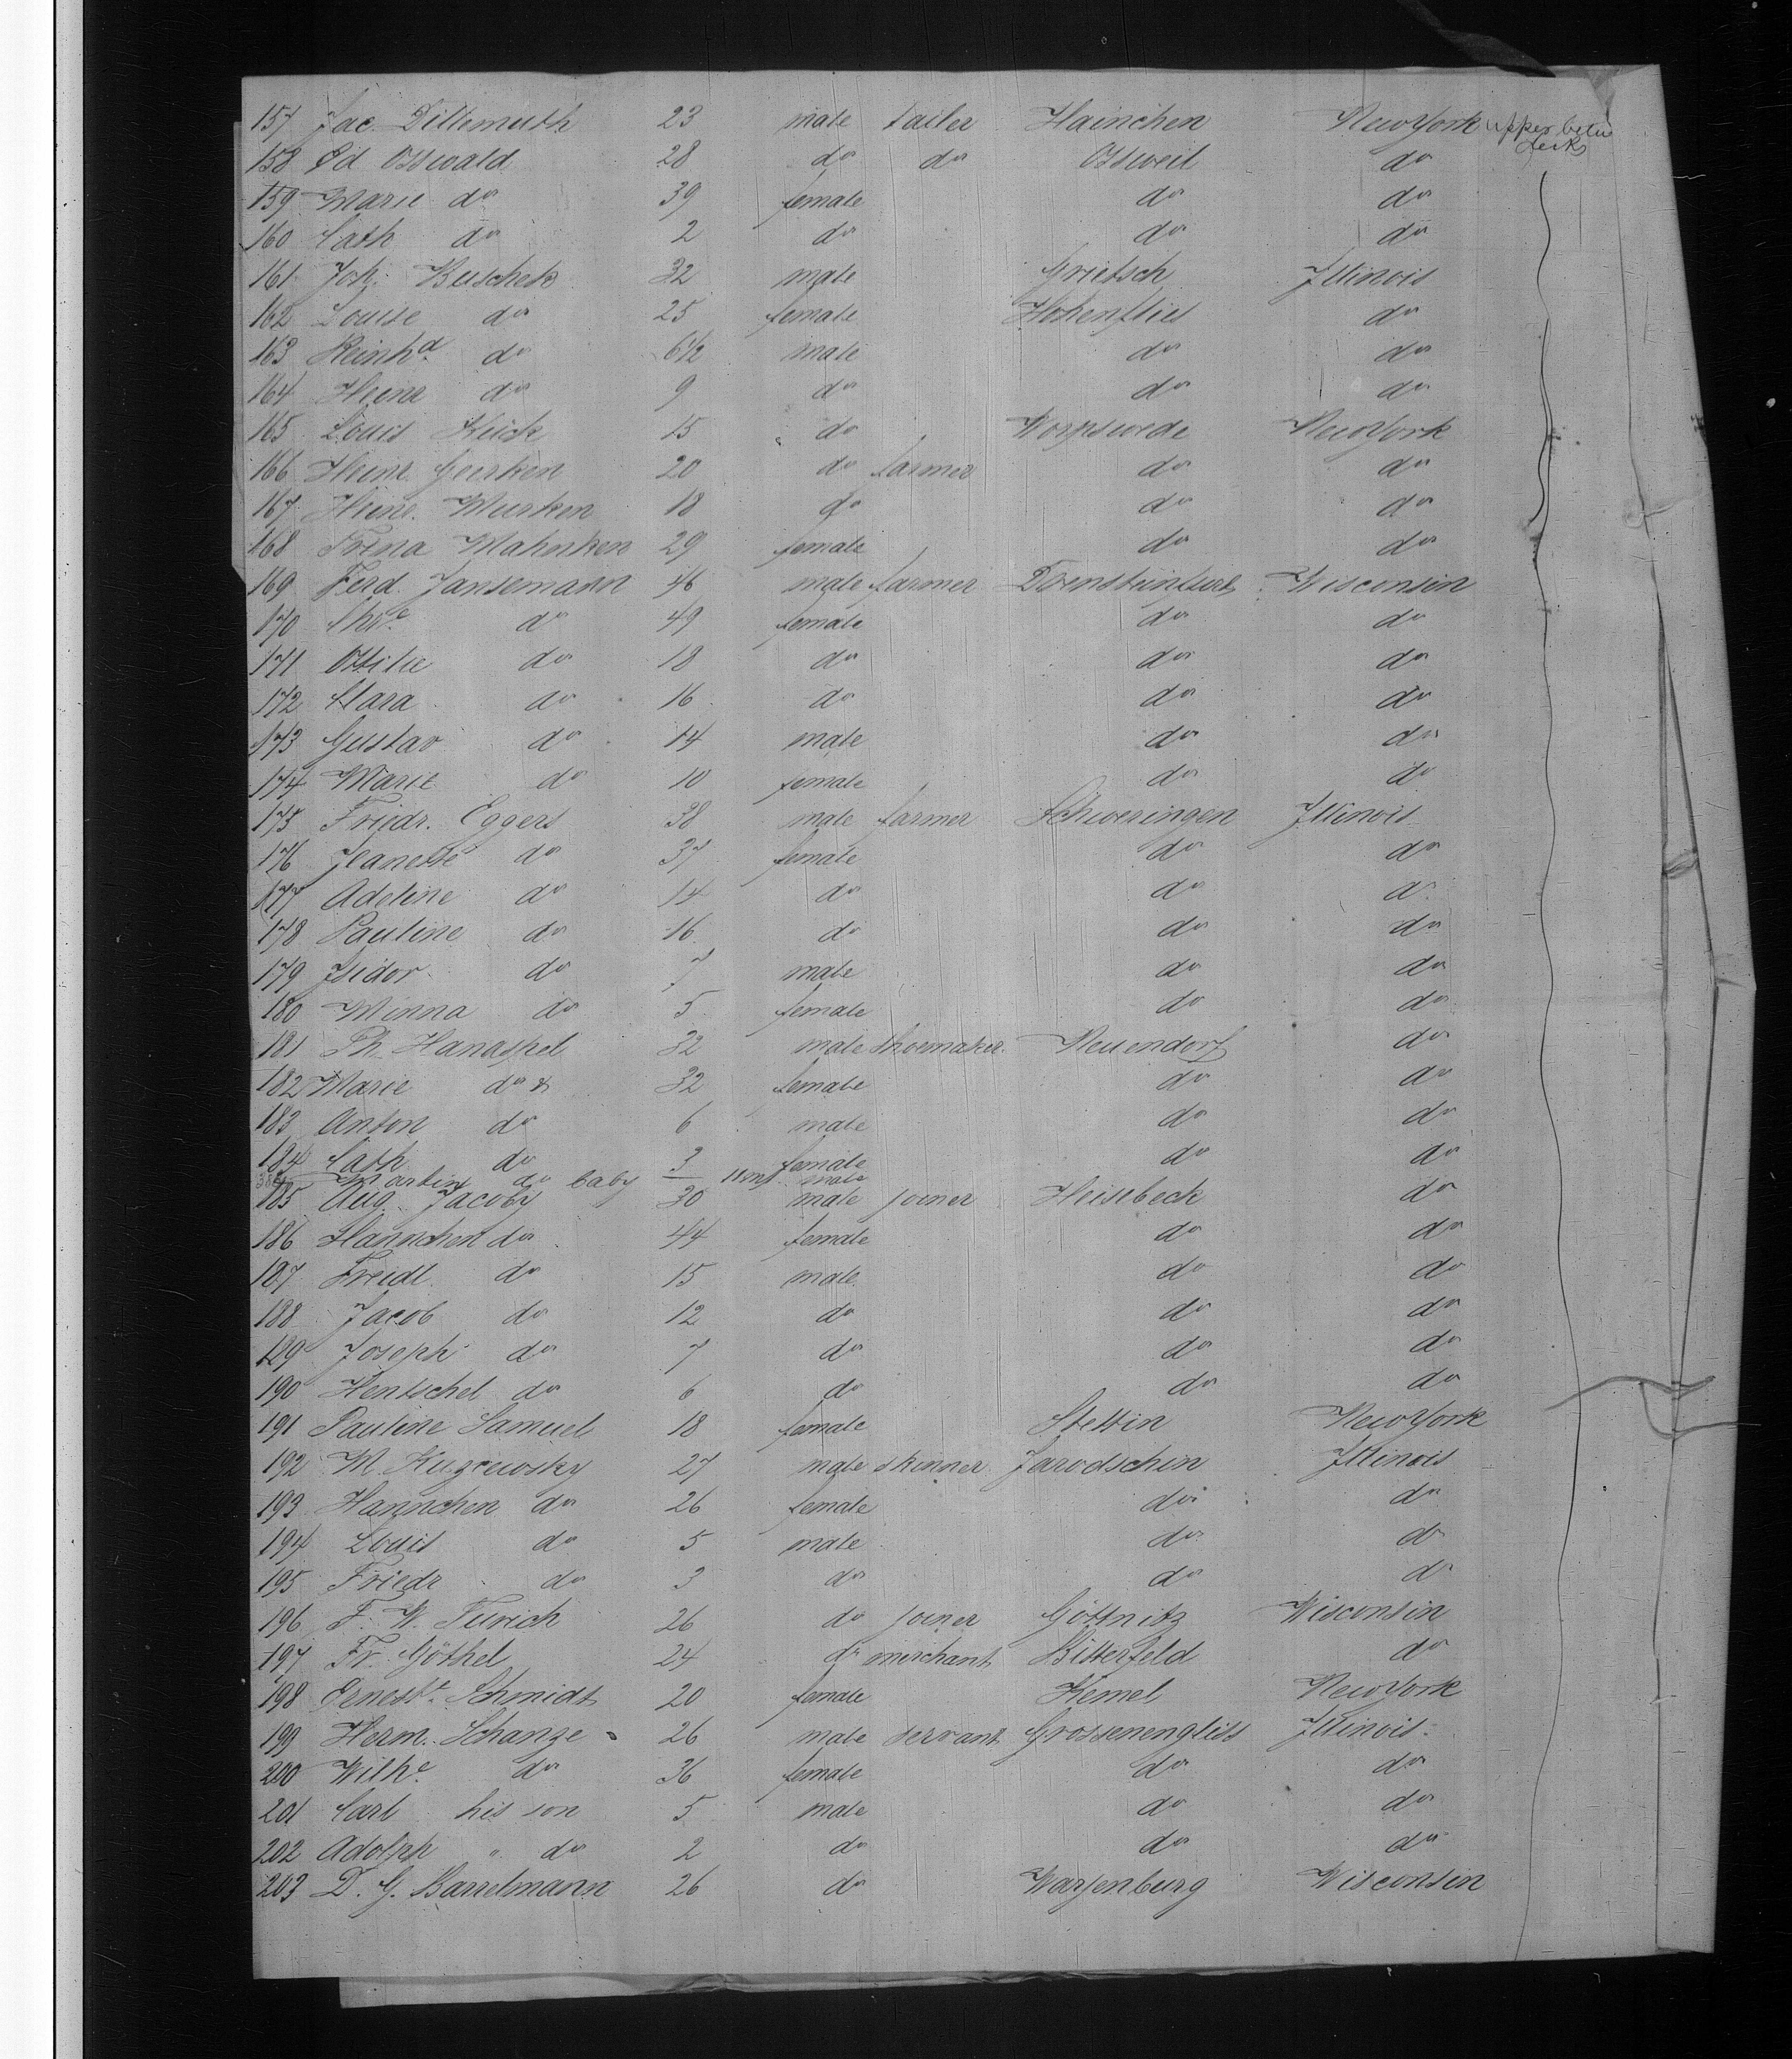 157 Jac. Dillemuth 23 male tailer Hainchen New York upper betw decks
158 Ed Osswald 28 do do Ossweil do
159 Marie do 39 female do do
160 Cath do 2 do do do
161 Joh. Buschek 32 male Grietsch Illinois
162 Louise do 25 female Hohenflies do
163 Reinhd. do 6½ male do do
164 Heinr do 9 do do do
165 Louis Kück 15 do Worpswede New York
166 Heinr. Geerken 20 do farmer do do
167 Heinr. Murken 18 do do do
168 Trina Mahnken 29 female do do
169 Ferd. Jansemann 46 male farmer Wisconsin
170 do 49 female do do
171 Ottilie do 18 do do do
172 Clara do 16 do do do
173 Gustav do 14 male do do
174 Marie do 10 female do do
175 Friedr. Eggers 38 male farmer Schweringen Illinois
176 Jeanette do 37 female do do
177 Adeline do 14 do do do
178 Pauline do 16 do do do
179 Isidor do 7 male do do
180 Minna do 5 female do do
181 Ph. Hanaspel 32 male shoemaker Neuendorf do
182 Marie do 32 female do do
183 Anton do 6 male do do
184 Cath do 3 female do do
Martin do baby 11 mt male
185 Aug. Jacoby 30 male joiner Heisebeck do
186 Hannchen do 44 female do do
187 Freidl do 15 male do do
188 Jacob do 12 do do do
189 Joseph do 7 do do do
190 Hentschel do 6 do do do
191 Pauline Samuel 18 female Stettin New York
192 M. Kuzcewsky 27 male skinner Jarodschin Illinois
193 Hannchen do 26 female do do
194 Louis do 5 male do do
195 Friedr do 3 do do do
196 F. W. Turich 26 do joiner Göttnitz Wisconsin
197 Fr. Göthel 24 do merchant Bitterfeld do
198 Ernestt. Schmidt 20 female Kemel New York
199 Herm. Schanze 26 male servant Grossenengliss Illinois
200 Wilhe. do 36 female do do
201 Carl his son 5 male do do
202 Adolph " do 2 do do do
203 D. G. Barrelmann 26 do Warfenburg Wisconsin